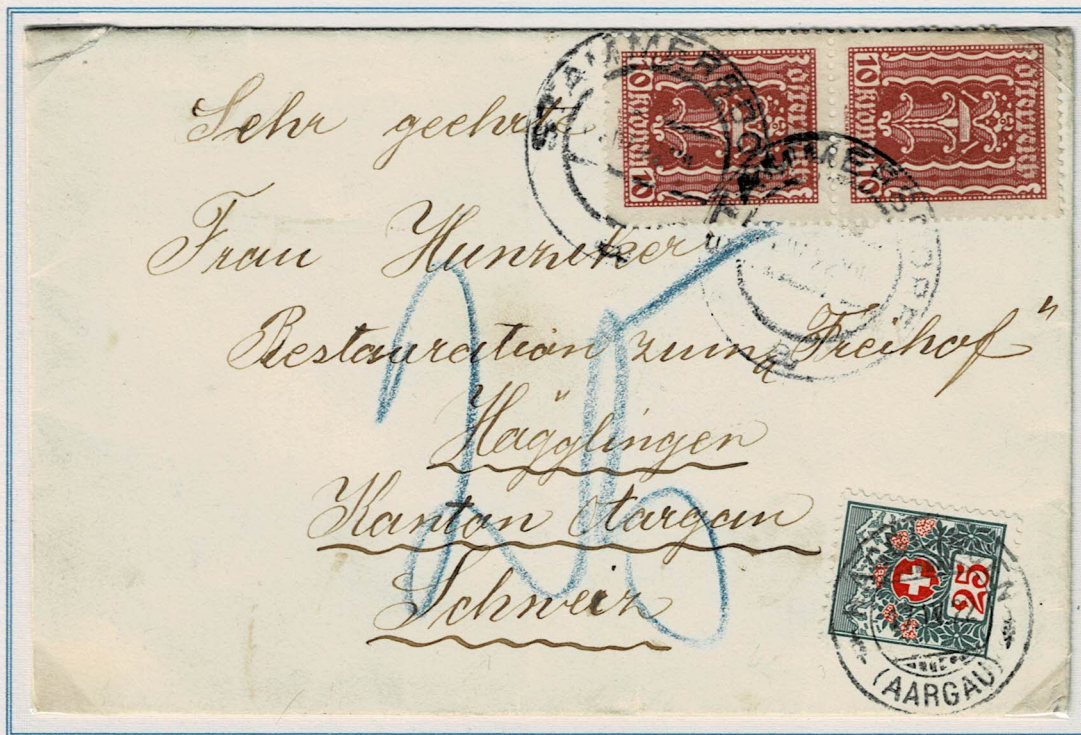 Sehr geehrte
Frau Hunziker
Restauration zum „Freihof“
Hägglingen
Kanton Aargau
Schweiz
25
10 Kronen 10
Österreich
10 Kronen 10
Österreich
STAMMERSDORF
STAMMERSDORF
25
(AARGAU)